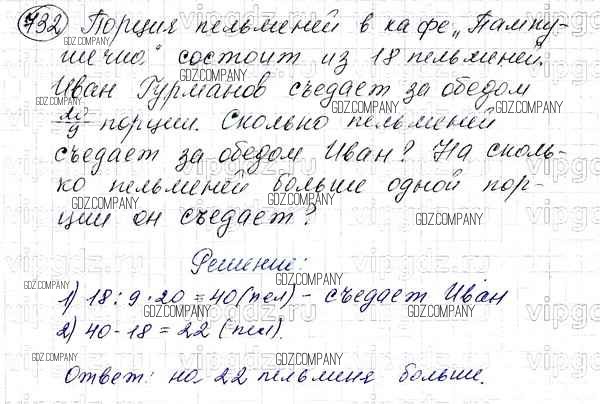 732 Порция пельменей в кафе „Пампу-
шечка" состоит из 18 пельменей.
Иван Гурманов съедает за обедом
20/9 порции. Сколько пельменей
съедает за обедом Иван? На сколь-
ко пельменей больше одной пор-
ции он съедает?
Решение:
1) 18 : 9 · 20 = 40 (пел) - съедает Иван
2) 40 - 18 = 22 (пел).
Ответ: на 22 пельменя больше.